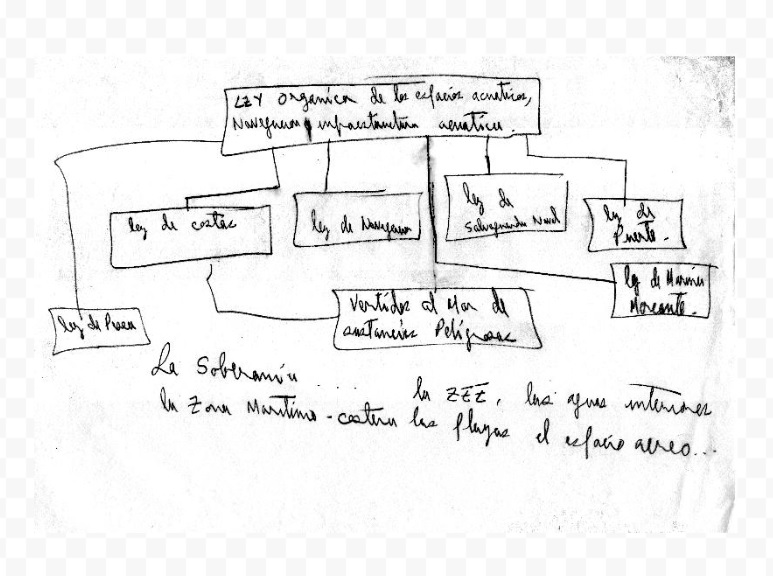 LEY organica de los espacios acuaticos,
Navegacion, infraestructura acuatica.
ley de costas
ley de Navegacion
ley de
Salvaguarda Naval
ley de
Puerto.
ley de Marina
Mercante.
ley de Pesca
Vertidos al Mar de
sustancias Peligrosas
La Soberanía .... la ZEE, las aguas interiores
la Zona Maritimo-costera las playas el espacio aereo...